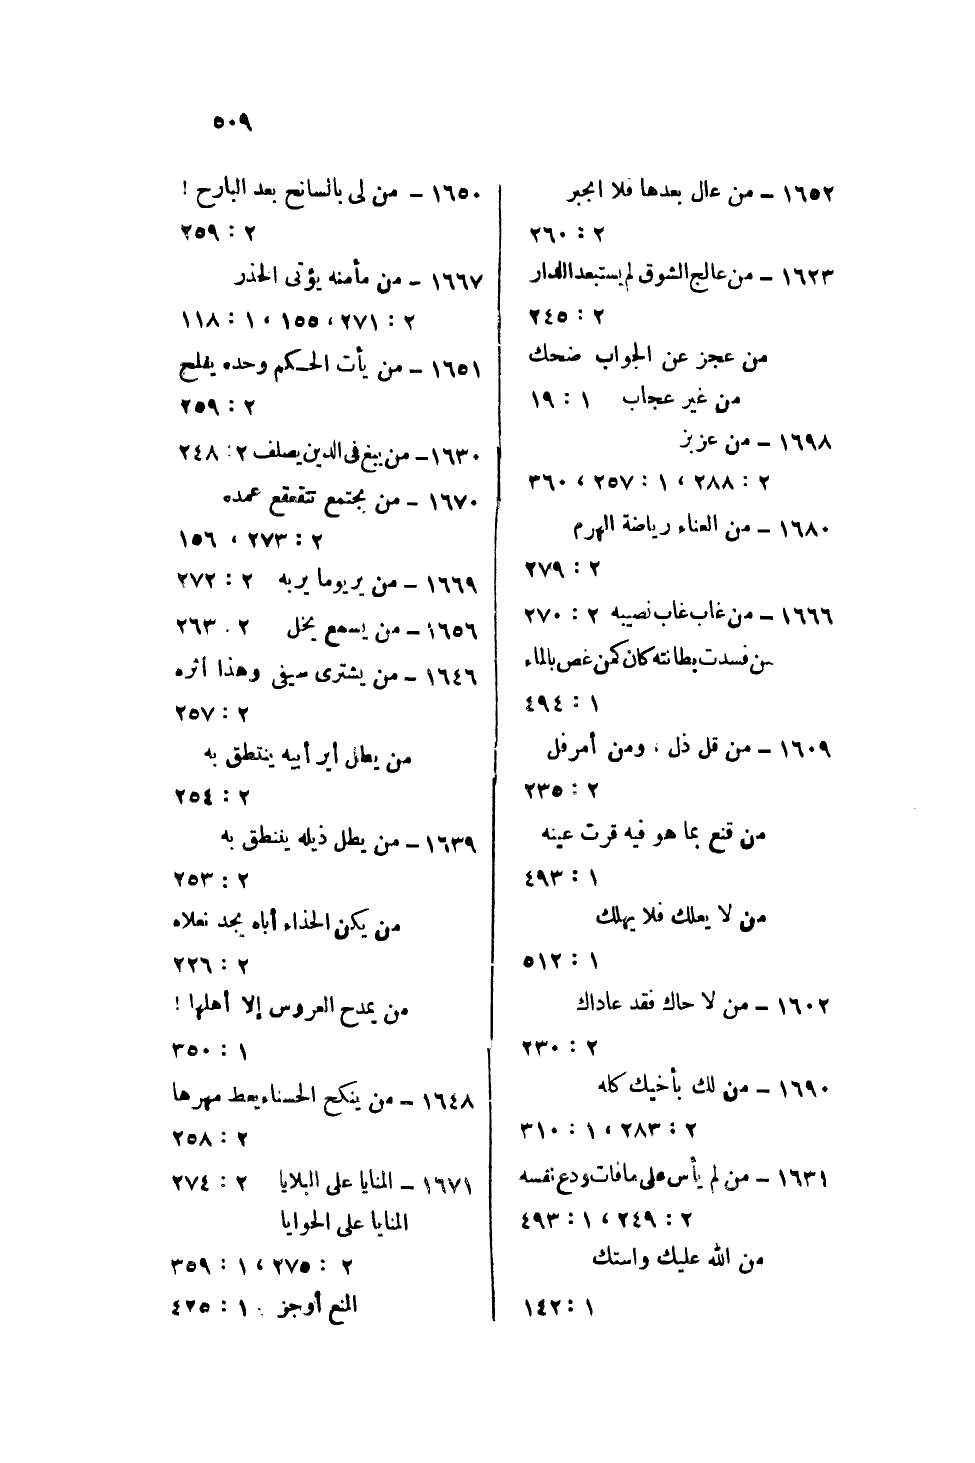 ٥٠٩
١٦٥٢ – من عال بعدها فلا انجبر
٢ : ٢٦٠
١٦٢٣ – من عالج الشوق لم يستبعد الدار
٢ : ٢٤٥
من عجز عن الجواب ضحك
من غير عجاب ١ : ١٩
١٦٩٨ – من عز بز
٢ : ٢٨٨ ، ١ : ٢٥٧ ، ٣٦٠
١٦٨٠ – من العناء رياضة الهرم
٢ : ٢٧٩
١٦٦٦ – من غاب غاب نصيبه ٢ : ٢٧٠
من فسدت بطانته كان كمن غص بالماء
١ : ٤٩٤
١٦٠٩ – من قل ذل ، ومن أمر فل
٢ : ٢٣٥
من قنع بما هو فيه قرت عينه
١ : ٤٩٣
من لا يعلك فلا يهلك
١ : ٥١٢
١٦٠٢ – من لا حاك فقد عاداك
٢ : ٢٣٠
١٦٩٠ – من لك بأخيك كله
٢ : ٢٨٣ ، ١ : ٣١٠
١٦٣١ – من لم يأس على مافات ودع نفسه
٢ : ٢٤٩ ، ١ : ٤٩٣
من الله عليك واستك
١ : ١٤٢
١٦٥٠ – من لى بالسانح بعد البارح !
٢ : ٢٥٩
١٦٦٧ – من مأمنه يؤتى الحذر
٢ : ٢٧١ ، ١٥٥ ، ١ : ١١٨
١٦٥١ – من يأت الحكم وحده يفلج
٢ : ٢٥٩
١٦٣٠ – من يبغ فى الدين يصلف ٢ : ٢٤٨
١٦٧٠ – من يجتمع تتقعقع عمده
٢ : ٢٧٣ ، ١٥٦
١٦٦٩ – من ير يوما ير به ٢ : ٢٧٢
١٦٥٦ – من يسمع يخل ٢ . ٢٦٣
١٦٤٦ – من يشترى سيفى وهذا أثره
٢ : ٢٥٧
من يطل أير أبيه ينتطق به
٢ : ٢٥٤
١٦٣٩ – من يطل ذيله ينتطق به
٢ : ٢٥٣
من يكن الحذاء أباه يجد نعلاه
٢ : ٢٢٦
من يمدح العروس إلا أهلها !
١ : ٣٥٠
١٦٤٨ – من ينكح الحسناء يعط مهرها
٢ : ٢٥٨
١٦٧١ – المنايا على البلايا ٢ : ٢٧٤
المنايا على الحوايا
٢ : ٢٧٥ ، ١ : ٣٥٩
المنع أوجز ١ : ٤٢٥